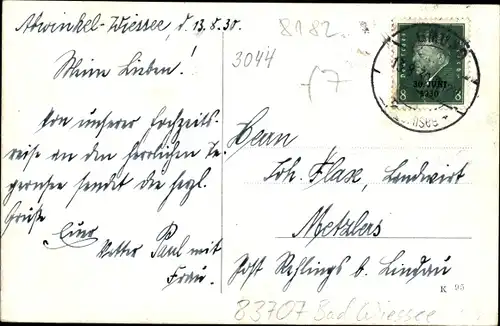 Abwinkel-Wiessee d. 13.8.30.
8182.
3044
f 7
Meine Lieben!
Von unserer Hochzeits-
reise an den herrlichen Te-
gernsee sendet die herzl.
Grüße
Euer
Vetter Paul mit
Frau.
DEUTSCHES
8 8
30. JUNI
1930
Herrn
Joh. Flax, Landwirt
Metzlers
Post Rehlings b. Lindau
K 95
83707 Bad Wiessee